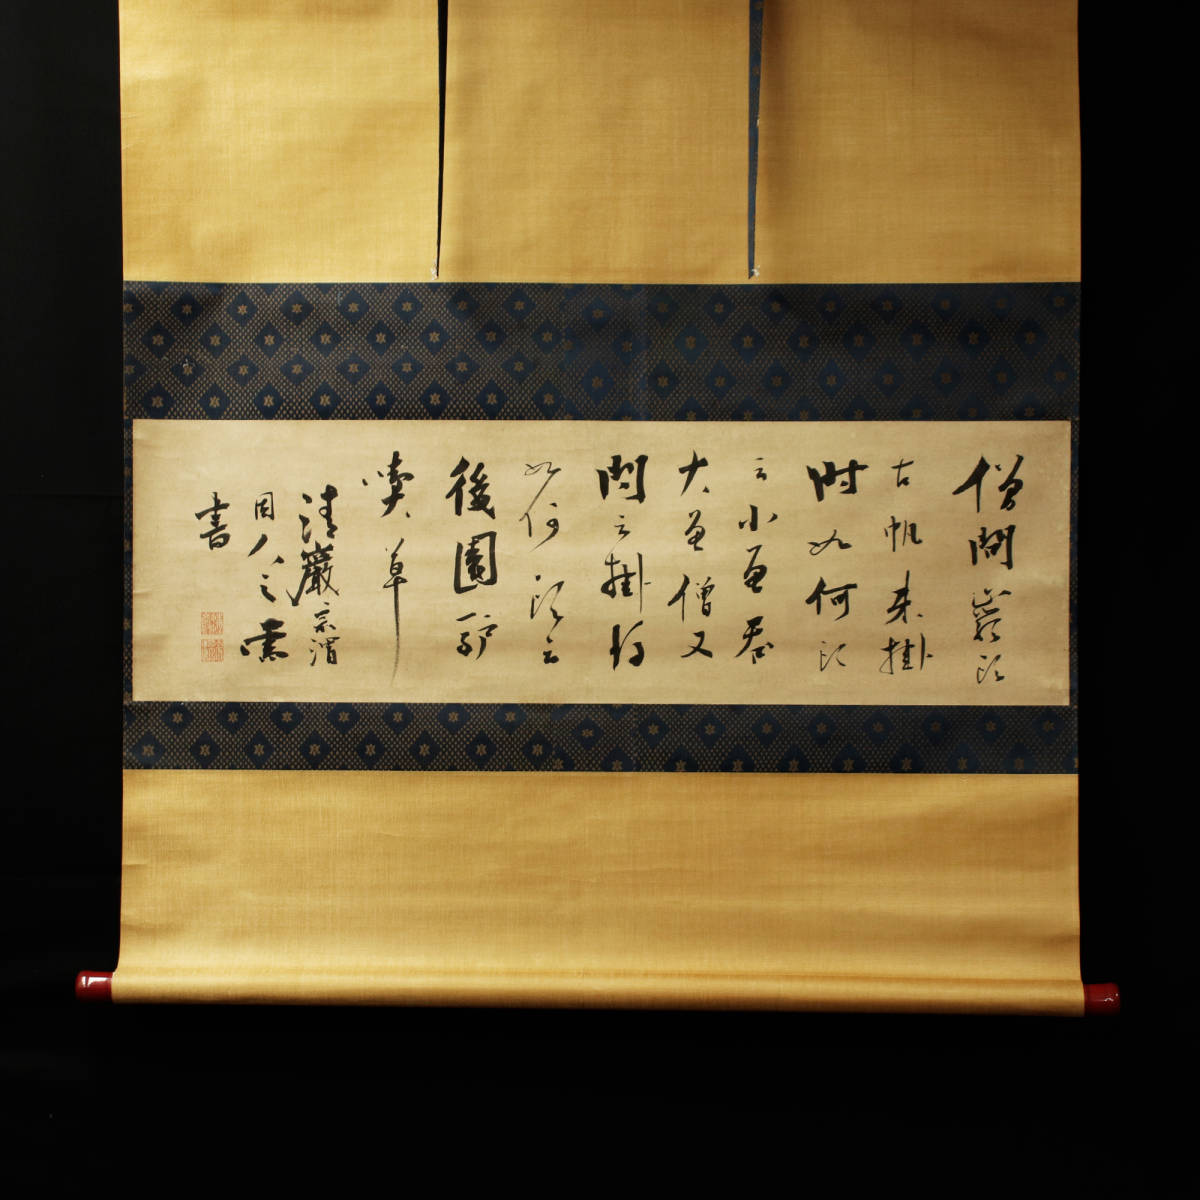 僧問巖頭
古帆未掛
時如何頭
云小魚呑
大魚僧又
問云掛後
如何頭云
後園驢
喫草
清巖宗渭
因人之需
書